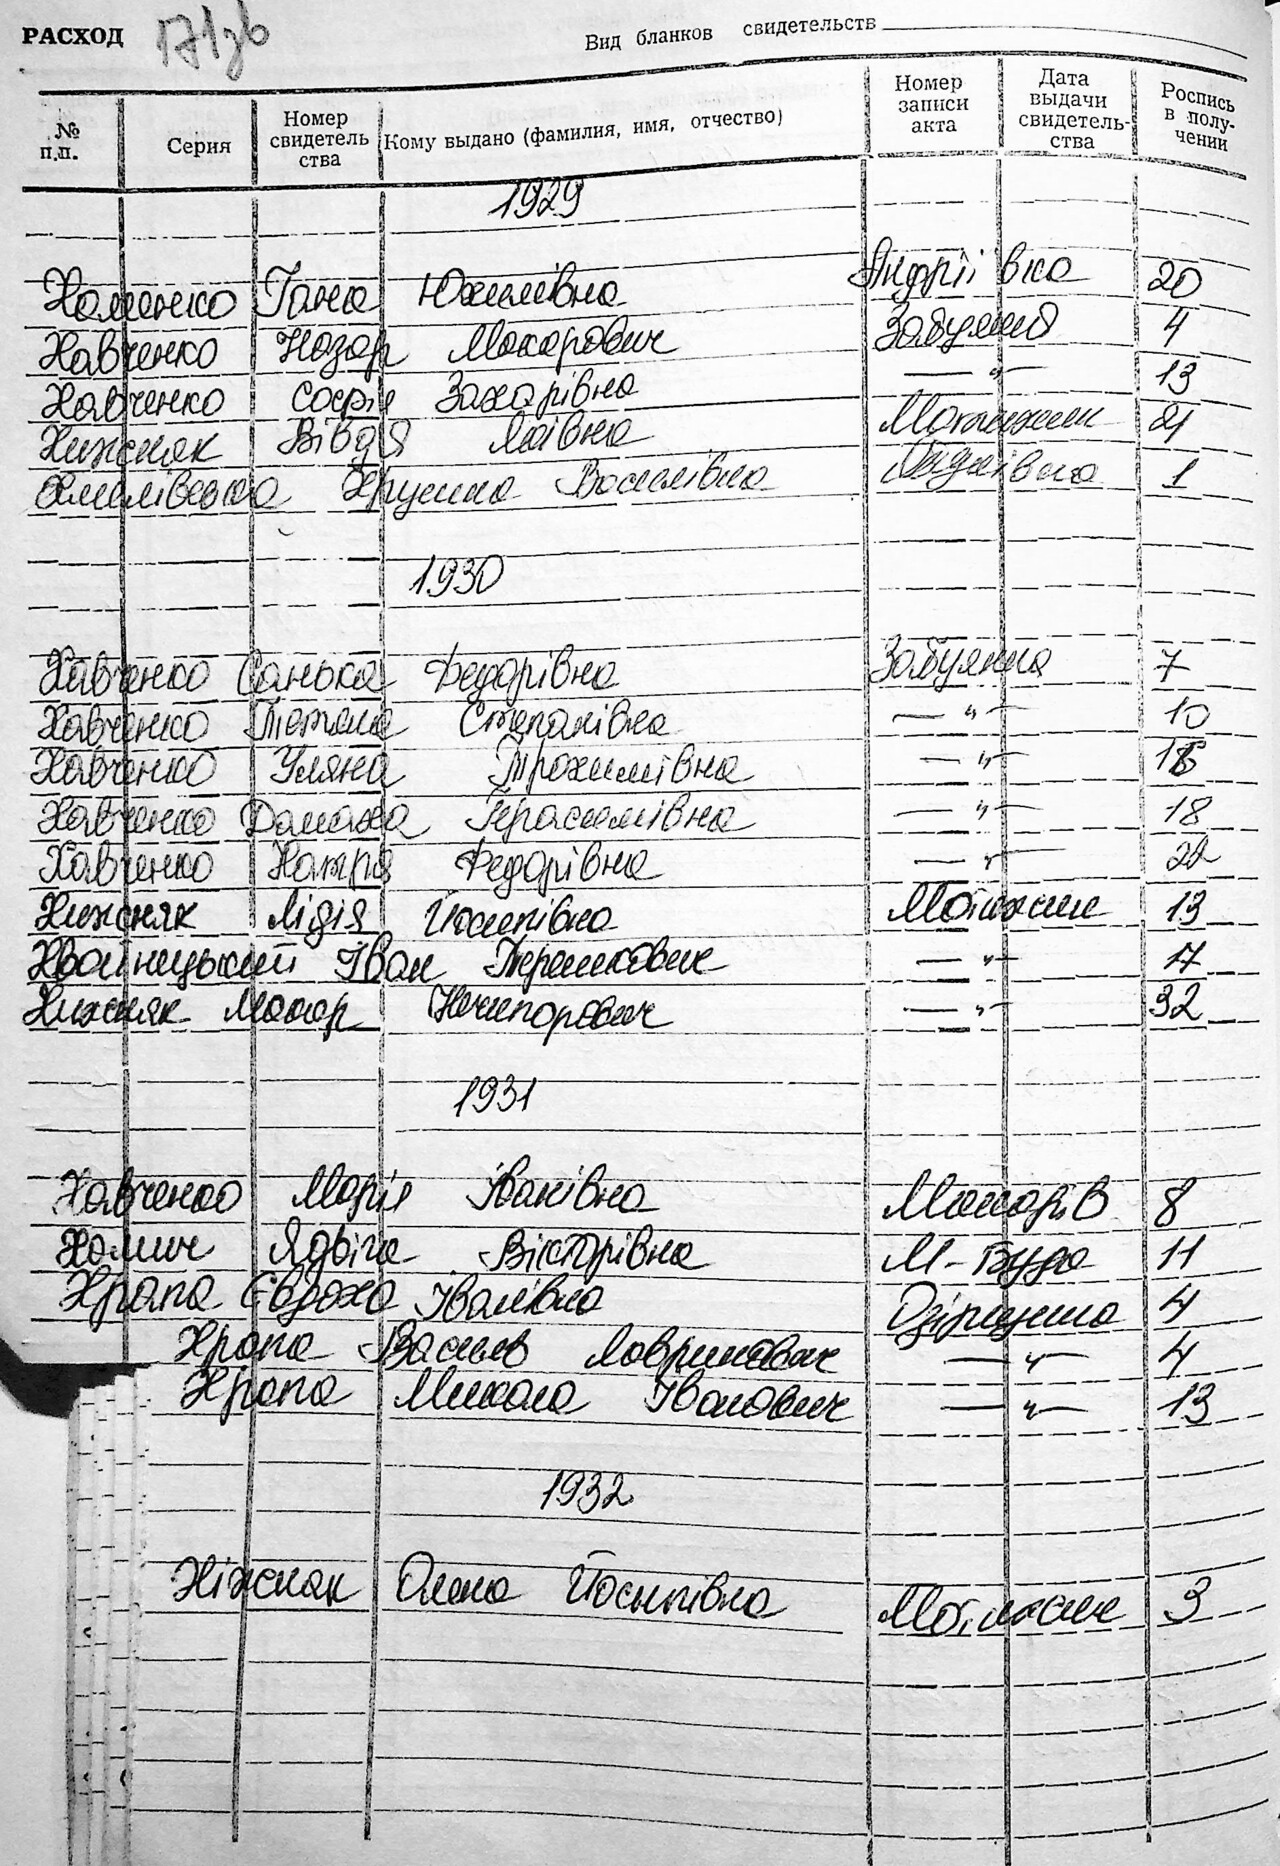 РАСХОД 171зв
Вид бланков свидетельств
№ п.п. Серия Номер свидетель ства Кому выдано (фамилия, имя, отчество) Номер записи акта Дата выдачи свидетель- ства Роспись в полу- чении
1929
Хоменко Ганна Юхимівна Андріївка 20
Хавченко Назар Макарович Забуяння 4
Хавченко Софія Захарівна —"— 13
Хижняк Вівдя Мотижин 21
Василівна 1
1930
Хавченко Санька Федорівна Забуяння 7
Хавченко Тетяна Степанівна —"— 10
Хавченко Уляна Трохимівна —"—
Хавченко Домаха Герасимівна —"— 18
Хавченко Федорівна —"— 22
Хижняк Лідія Йосипівна Мотижин 13
Іван Терешкович —"— 17
Хижняк Макар Ничипорович —"— 32
1931
Хавченко Марія Іванівна Макарів 8
Хомич Ядвіга Вікторівна М-Буда 11
Храпа Євдоха Іванівна 4
Храпа Василь Лавринович —"— 4
Храпа Микола Іванович —"— 13
1932
Хіжняк Олена Йосипівна Мотижин 3